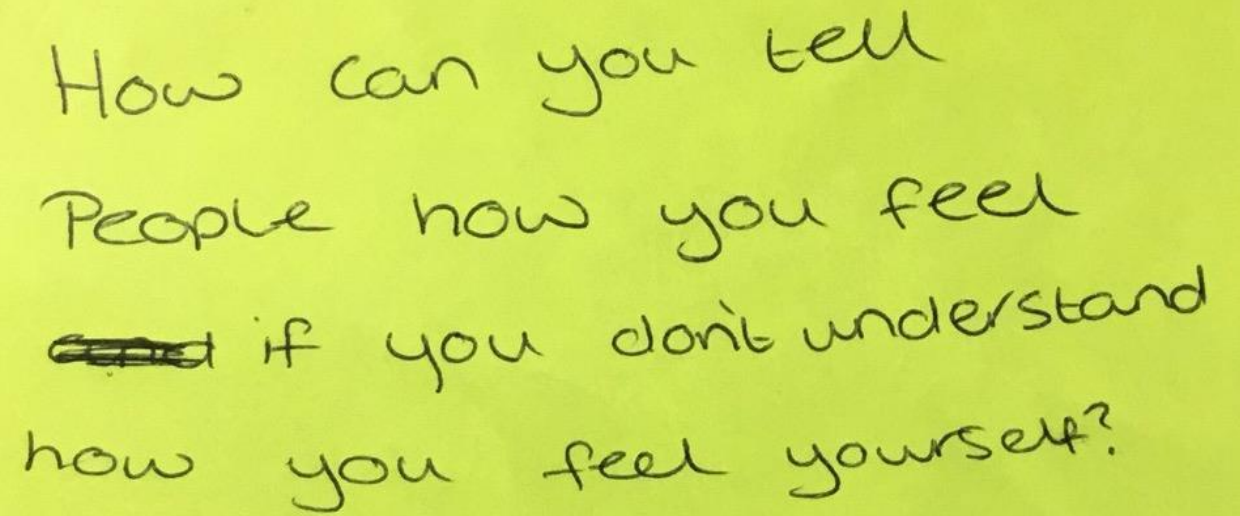 How can you tell
People how you feel
if you don't understand
how you feel yourself?